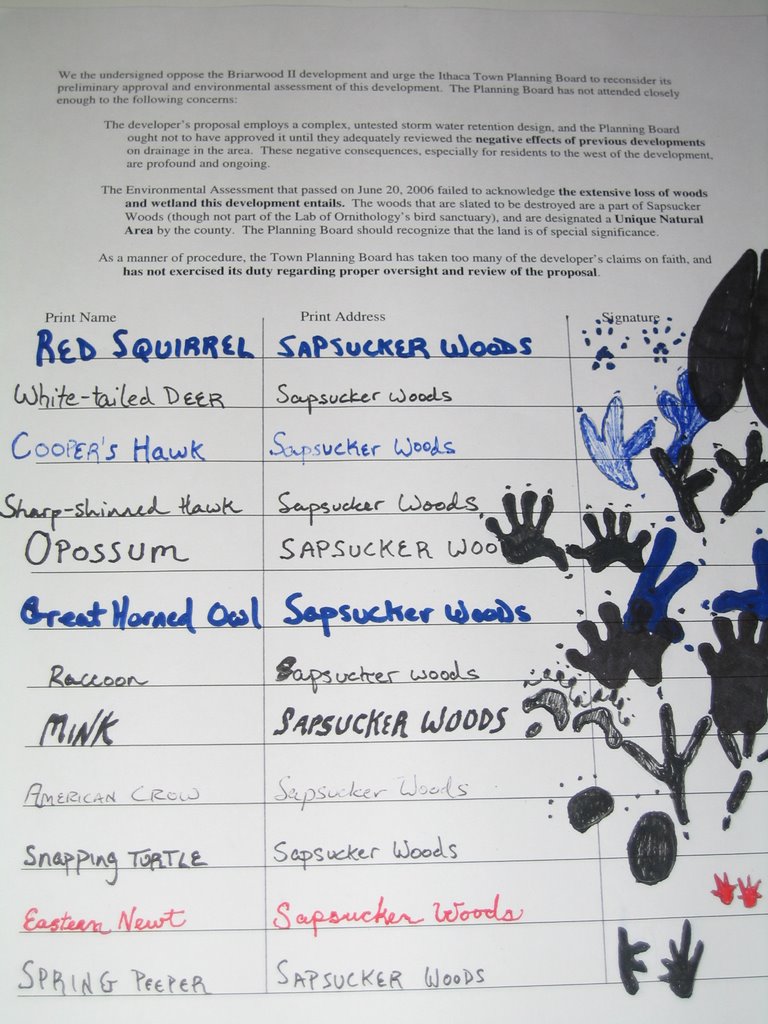 We the undersigned oppose the Briarwood II development and urge the Ithaca Town Planning Board to reconsider its
preliminary approval and environmental assessment of this development. The Planning Board has not attended closely
enough to the following concerns:
The developer's proposal employs a complex, untested storm water retention design, and the Planning Board
ought not to have approved it until they adequately reviewed the negative effects of previous developments
on drainage in the area. These negative consequences, especially for residents to the west of the development,
are profound and ongoing.
The Environmental Assessment that passed on June 20, 2006 failed to acknowledge the extensive loss of woods
and wetland this development entails. The woods that are slated to be destroyed are a part of Sapsucker
Woods (though not part of the Lab of Ornithology's bird sanctuary), and are designated a Unique Natural
Area by the county. The Planning Board should recognize that the land is of special significance.
As a manner of procedure, the Town Planning Board has taken too many of the developer's claims on faith, and
has not exercised its duty regarding proper oversight and review of the proposal.
Print Name Print Address Signature
RED SQUIRREL SAPSUCKER WOODS
White-tailed DEER Sapsucker Woods
COOPER'S HAWK Sapsucker Woods
Sharp-shinned Hawk Sapsucker Woods
OPOSSUM SAPSUCKER WOO
Great Horned Owl Sapsucker Woods
Raccoon Sapsucker woods
MINK SAPSUCKER WOODS
AMERICAN CROW Sapsucker Woods
Snapping TURTLE Sapsucker Woods
Eastern Newt Sapsucker Woods
SPRING PEEPER SAPSUCKER WOODS